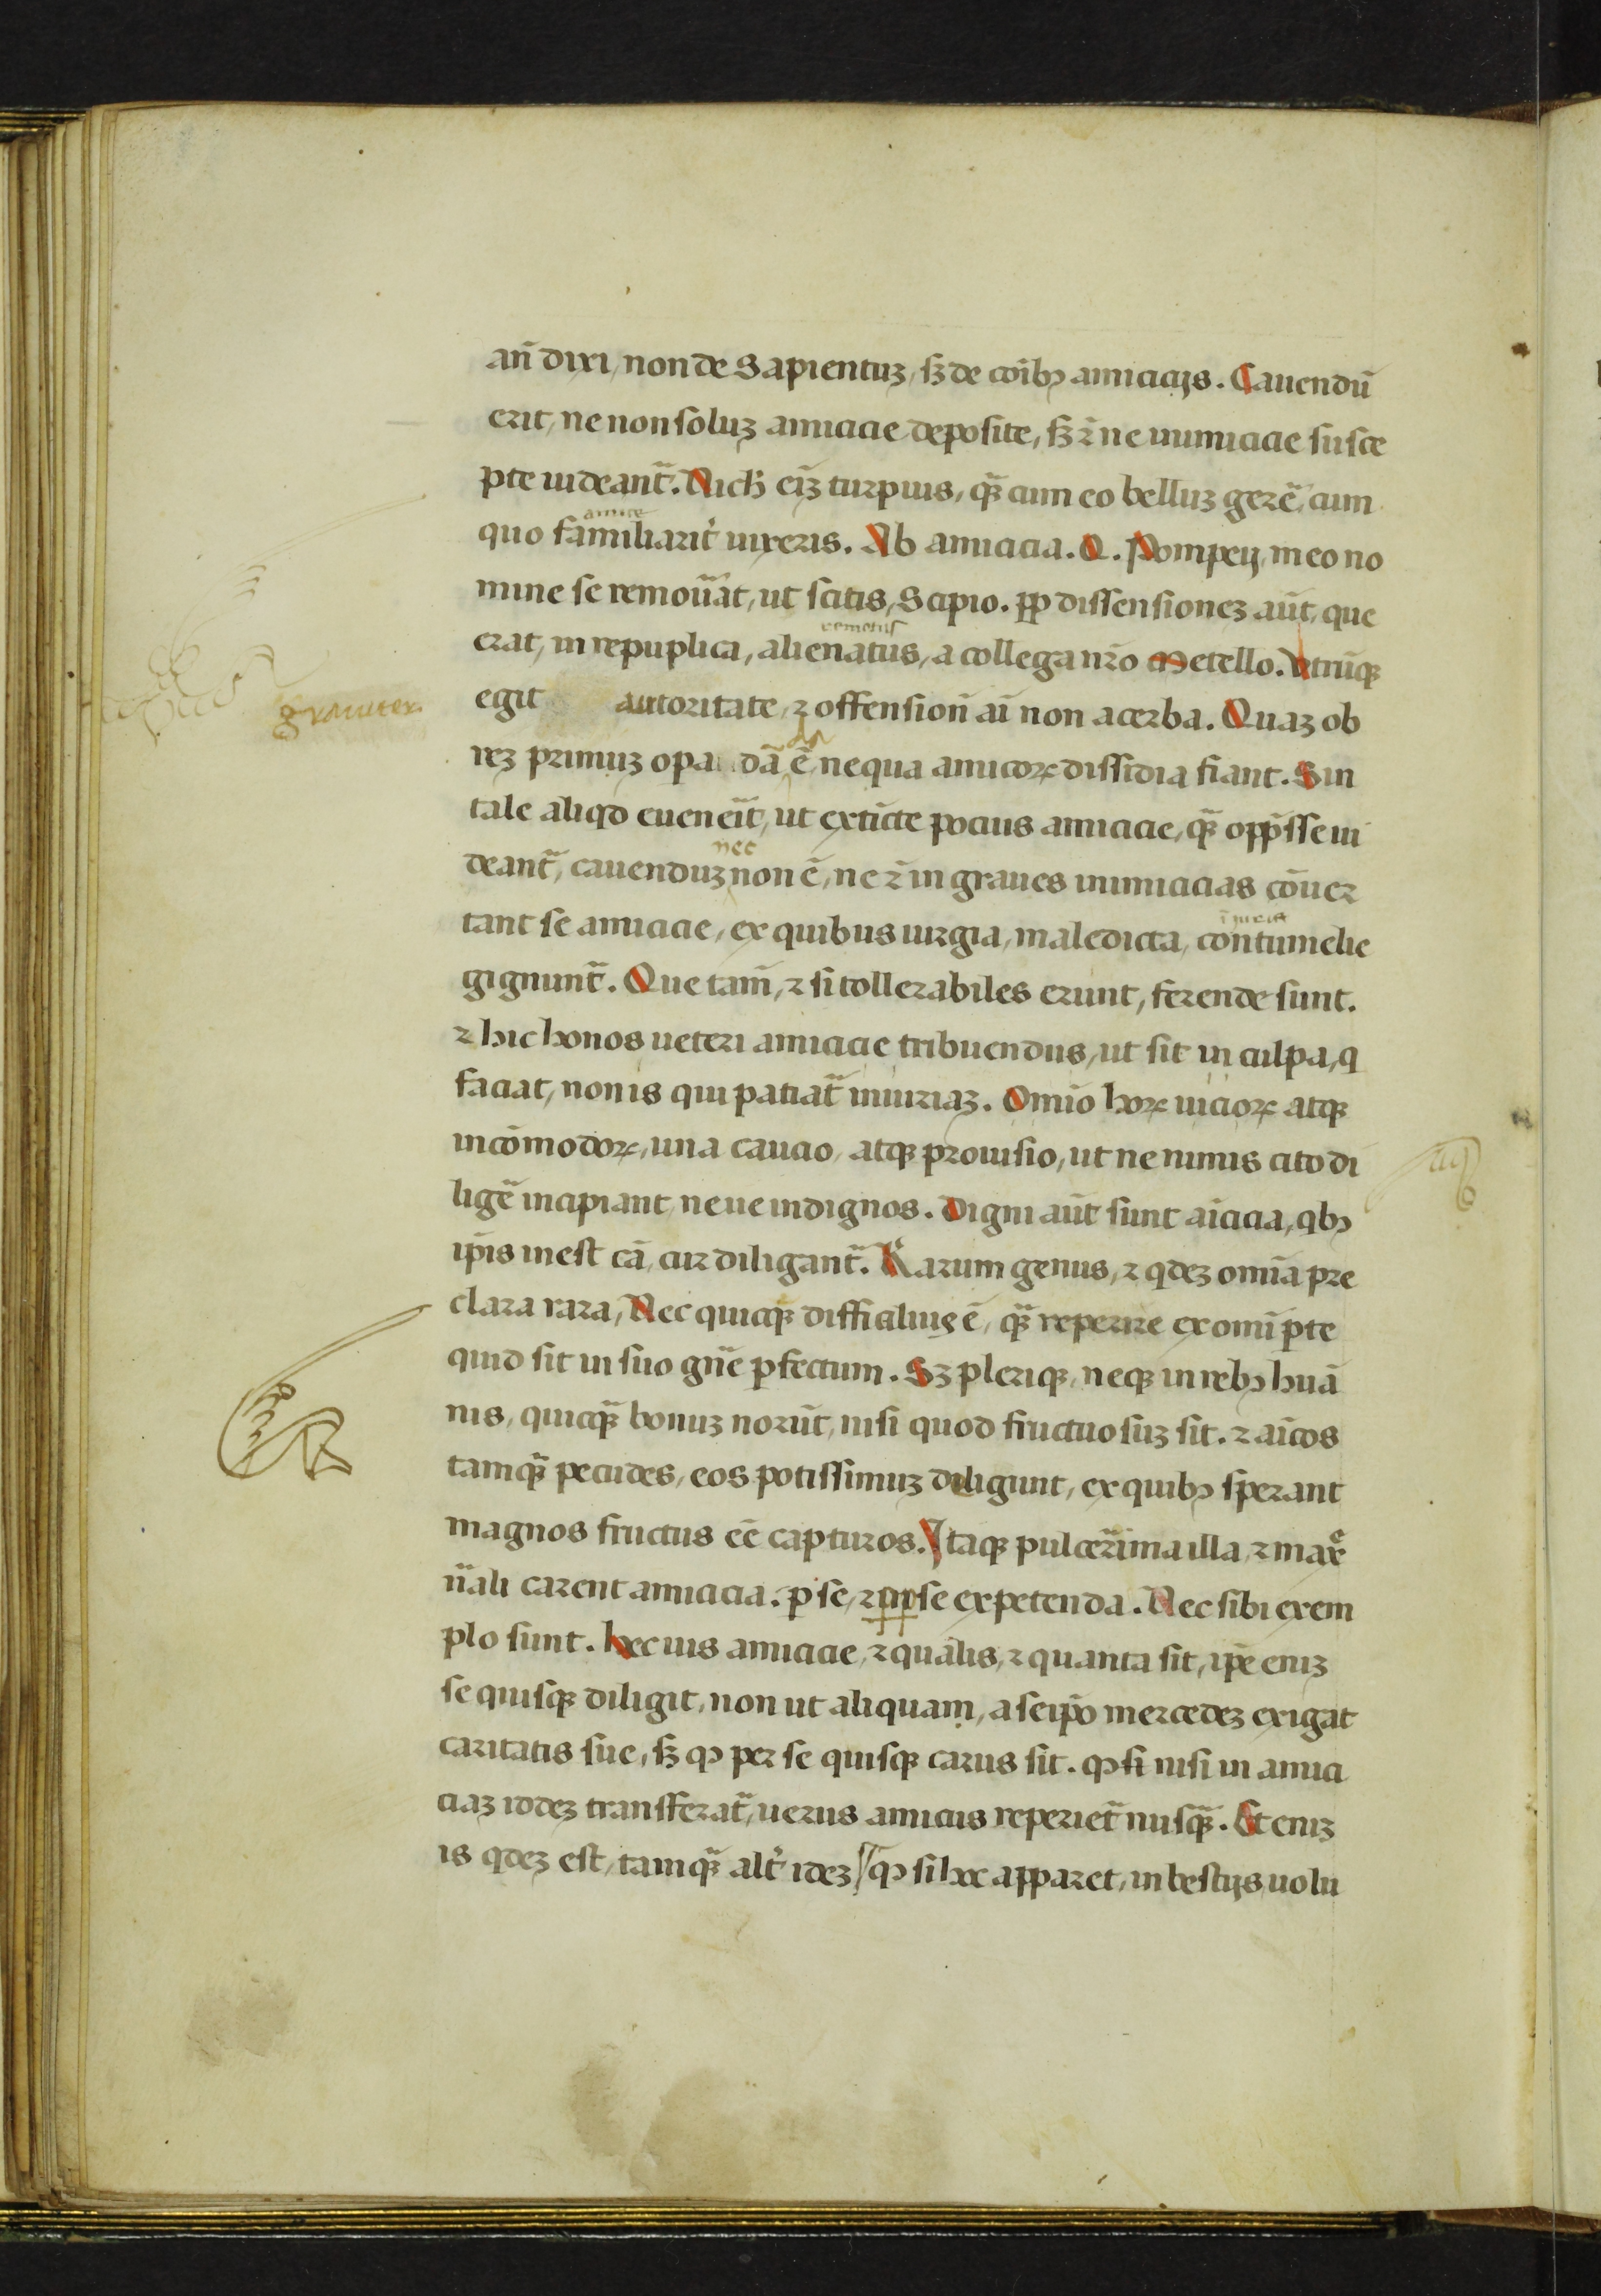 an̄ dixi, non de Sapientuȝ, sȝ de cōibꝯ amicicijs. Cauendū
erit, ne non soluȝ amicicie deposite, sȝ ⁊̄ ne inimicicie susce
pte uideant᷑. Nich̄ eīȝ turpius, qȝ̄ cum eo belluȝ gerē, cum
amice
quo familiarit̕ uixeris. Ab amicicia. Q. Pompeij, meo no
mine se remoūat, ut scitis, Scipio. ꝓp dissensioneȝ aūt, que
remotus
erat, in repuplica, alienatus, a collega nr̄o Metello. Utrūqȝ
grauiter
egit autoritate, ⁊ offension̄ ai̅ non acerba. Quaȝ ob
da
reȝ primuȝ opa dā ē, ne qua amicoꝝ dissidia fiant. Sin
tale aliqd eueneīt, ut extīcte pocius amicicie, qȝ̄ opp̄sse ui
nec
deant᷑, cauenduȝ non ē, ne ⁊̄ in graues inimicicias cōuer
tant se amicicie, ex quibus iurgia, maledicta, contumelie
gignunt᷑. Que tam̄, ⁊ si tollerabiles erunt, ferende sunt.
⁊ hic honos ueteri amicicie tribuendus, ut sit in culpa, q
faciat, non is qui patiat᷑ iniuriaȝ. Omīo hoꝝ uicioꝝ atqȝ
incōmodoꝝ, una caucio, atqȝ prouisio, ut ne nimis cito di
ligē incipiant, neue indignos. Digni aūt sunt aīcicia, qbꝯ
ip̄is inest cā, cur diligant᷑. Rarum genus, ⁊ qdeȝ omīa pre
clara rara, Nec quicqȝ̄ difficilius ē, qȝ̄ reperire ex omī ꝑte
quid sit in suo gn̄e ꝑfectum. Sȝ pleriqȝ, neqȝ in rebꝯ huā
nis, quicqȝ̄ bonuȝ norūt, nisi quod fructuosuȝ sit. ⁊ aīcos
tamqȝ̄ pecudes, eos potissimuȝ diligunt, ex quibꝯ sperant
magnos fructus eē capturos. Itaqȝ pulcer̄ima illa, ⁊ maxͤ
n̄ali carent amicicia. ꝑ se, ⁊ ꝓp se expetenda. Nec sibi exem
plo sunt. hec uis amicicie, ⁊ qualis, ⁊ quanta sit, ip̄e eniȝ
se quisqȝ diligit, non ut aliquam, a seip̄o mercedeȝ exigat
caritatis sue, sȝ qꝯ per se quisqȝ carus sit. qꝯ si nisi in amici
ciaȝ iddeȝ transferat᷑, uerus amicus reperiet᷑ nusqȝ̄. Est eniȝ
is qdeȝ est, tamqȝ̄ alt̕ ideȝ qꝯ si hoc apparet, in bestijs, uolu